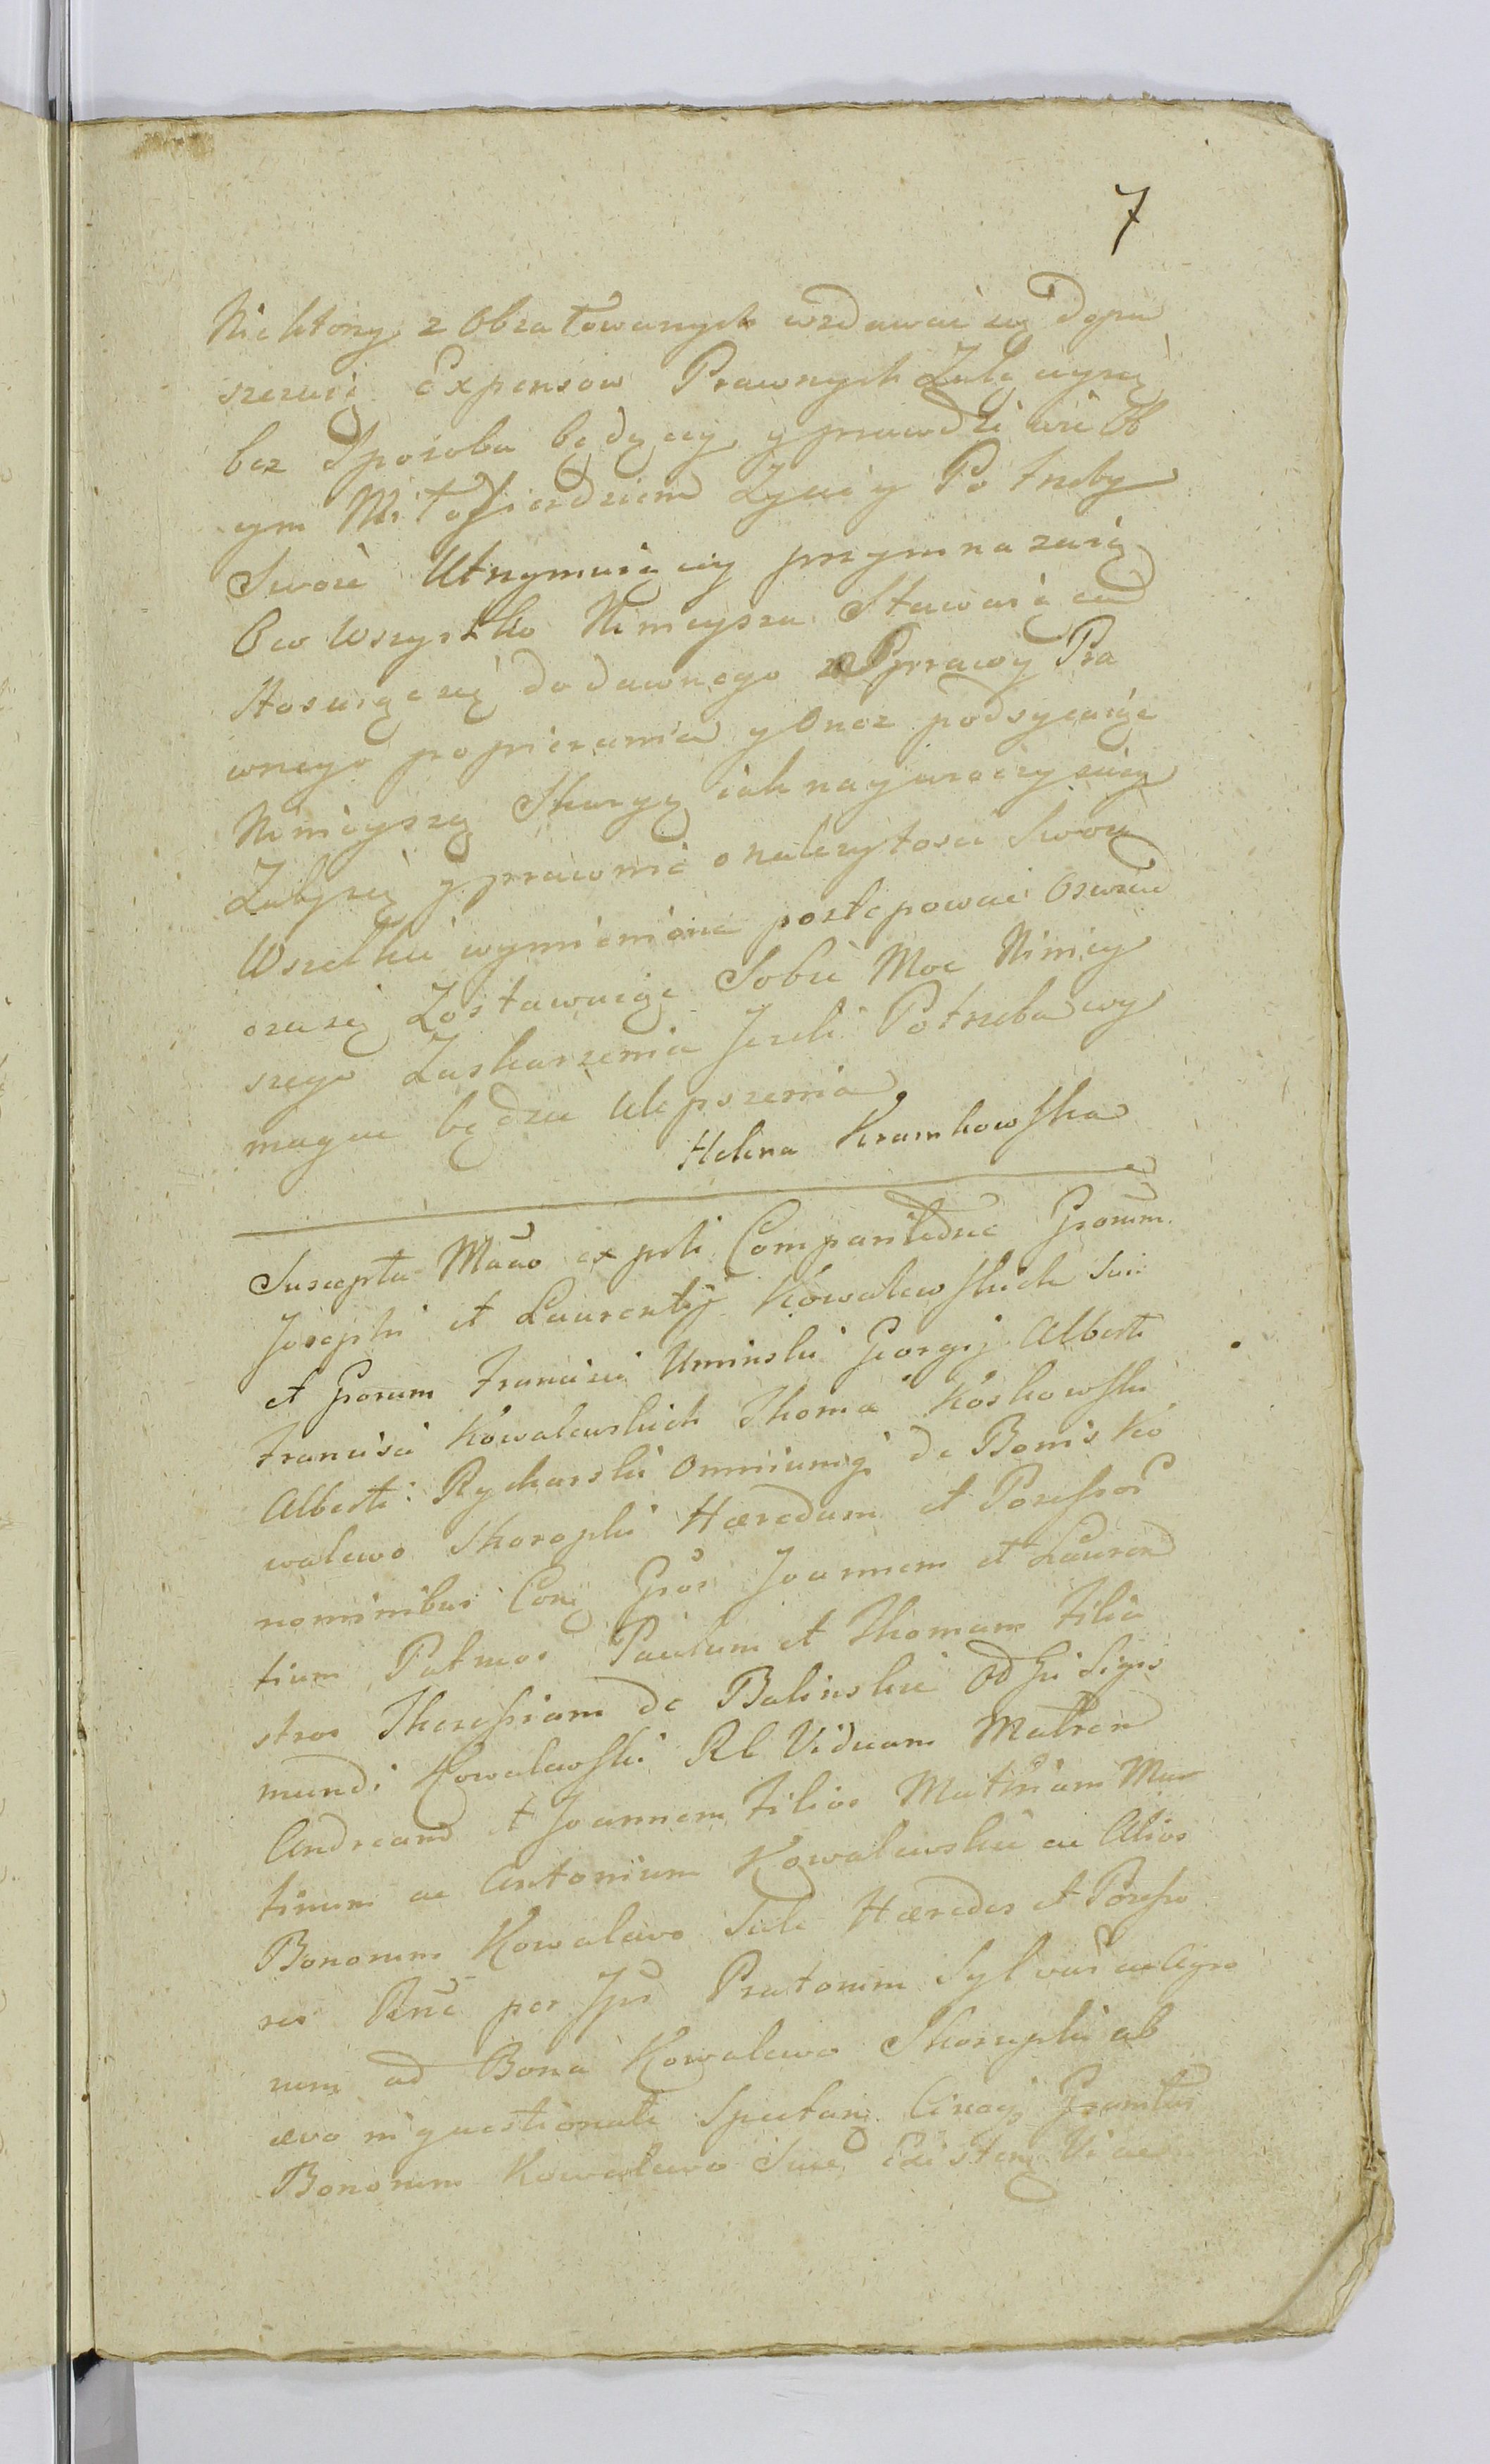 7
Niektory z Obzałowanych wzdawać się dopu
szczaią Expensow Prawnych Załuiącey
bez Sposobu będącey y prawdziwie Ob
cym Miłosierdziem Zyiący Potrzeby
Swoie Utrzymuiący przymnażaią
Oco Wszystko Ninieysza Stawaiąca
Stosuiąc się do dawnego Sprawy Pra
wnego popierania y Onoz podsycaiąc
Ninieyszą Skargę iak nayuroczysciey
Załączy y prawnie o nalezytosci Swoie
Wszelkie wymienione postępować Oswiad
cza się Zostawuiąc Sobie Moc Niniey
szego Zaskarzenia Jezeli Potrzeba wy
magac będzie Ulepszenia
Helena Kramkowska
Suscepta Mano ex psti Comparitione Grorum
Josephi et Laurentij Kowalewskich Sui
et Grorum Francisci Uminski Georgij Alberti
Francisci Kowalewskich Thomæ Koskowski
Alberti Rycharski Omniumq de Bonis Ko
walewo Skorupki Hæredum et Possessor
nominibus Con Gsos Joannem et Lauren
tium Patruos Paulum et Thomam Filia
stros Theressiam de Balinskie Olim Gsi Sigis
mundi Kowalewski Rl Viduam Matrem
Andream et Joannem Filios Mathiam Mar
tinum ac Antonium Kowalewskie ac Alios
Bonorum Kowalewo Sule Hæredes et Possesso
res Rne per Ipsos Pratorum Sylvarum ac Agro
rum ad Bona Kowalewo Skorupki ab
ævo inquestionate Spectan Circaq Granities
Bonorum Kowalewo Suie Existen Viae